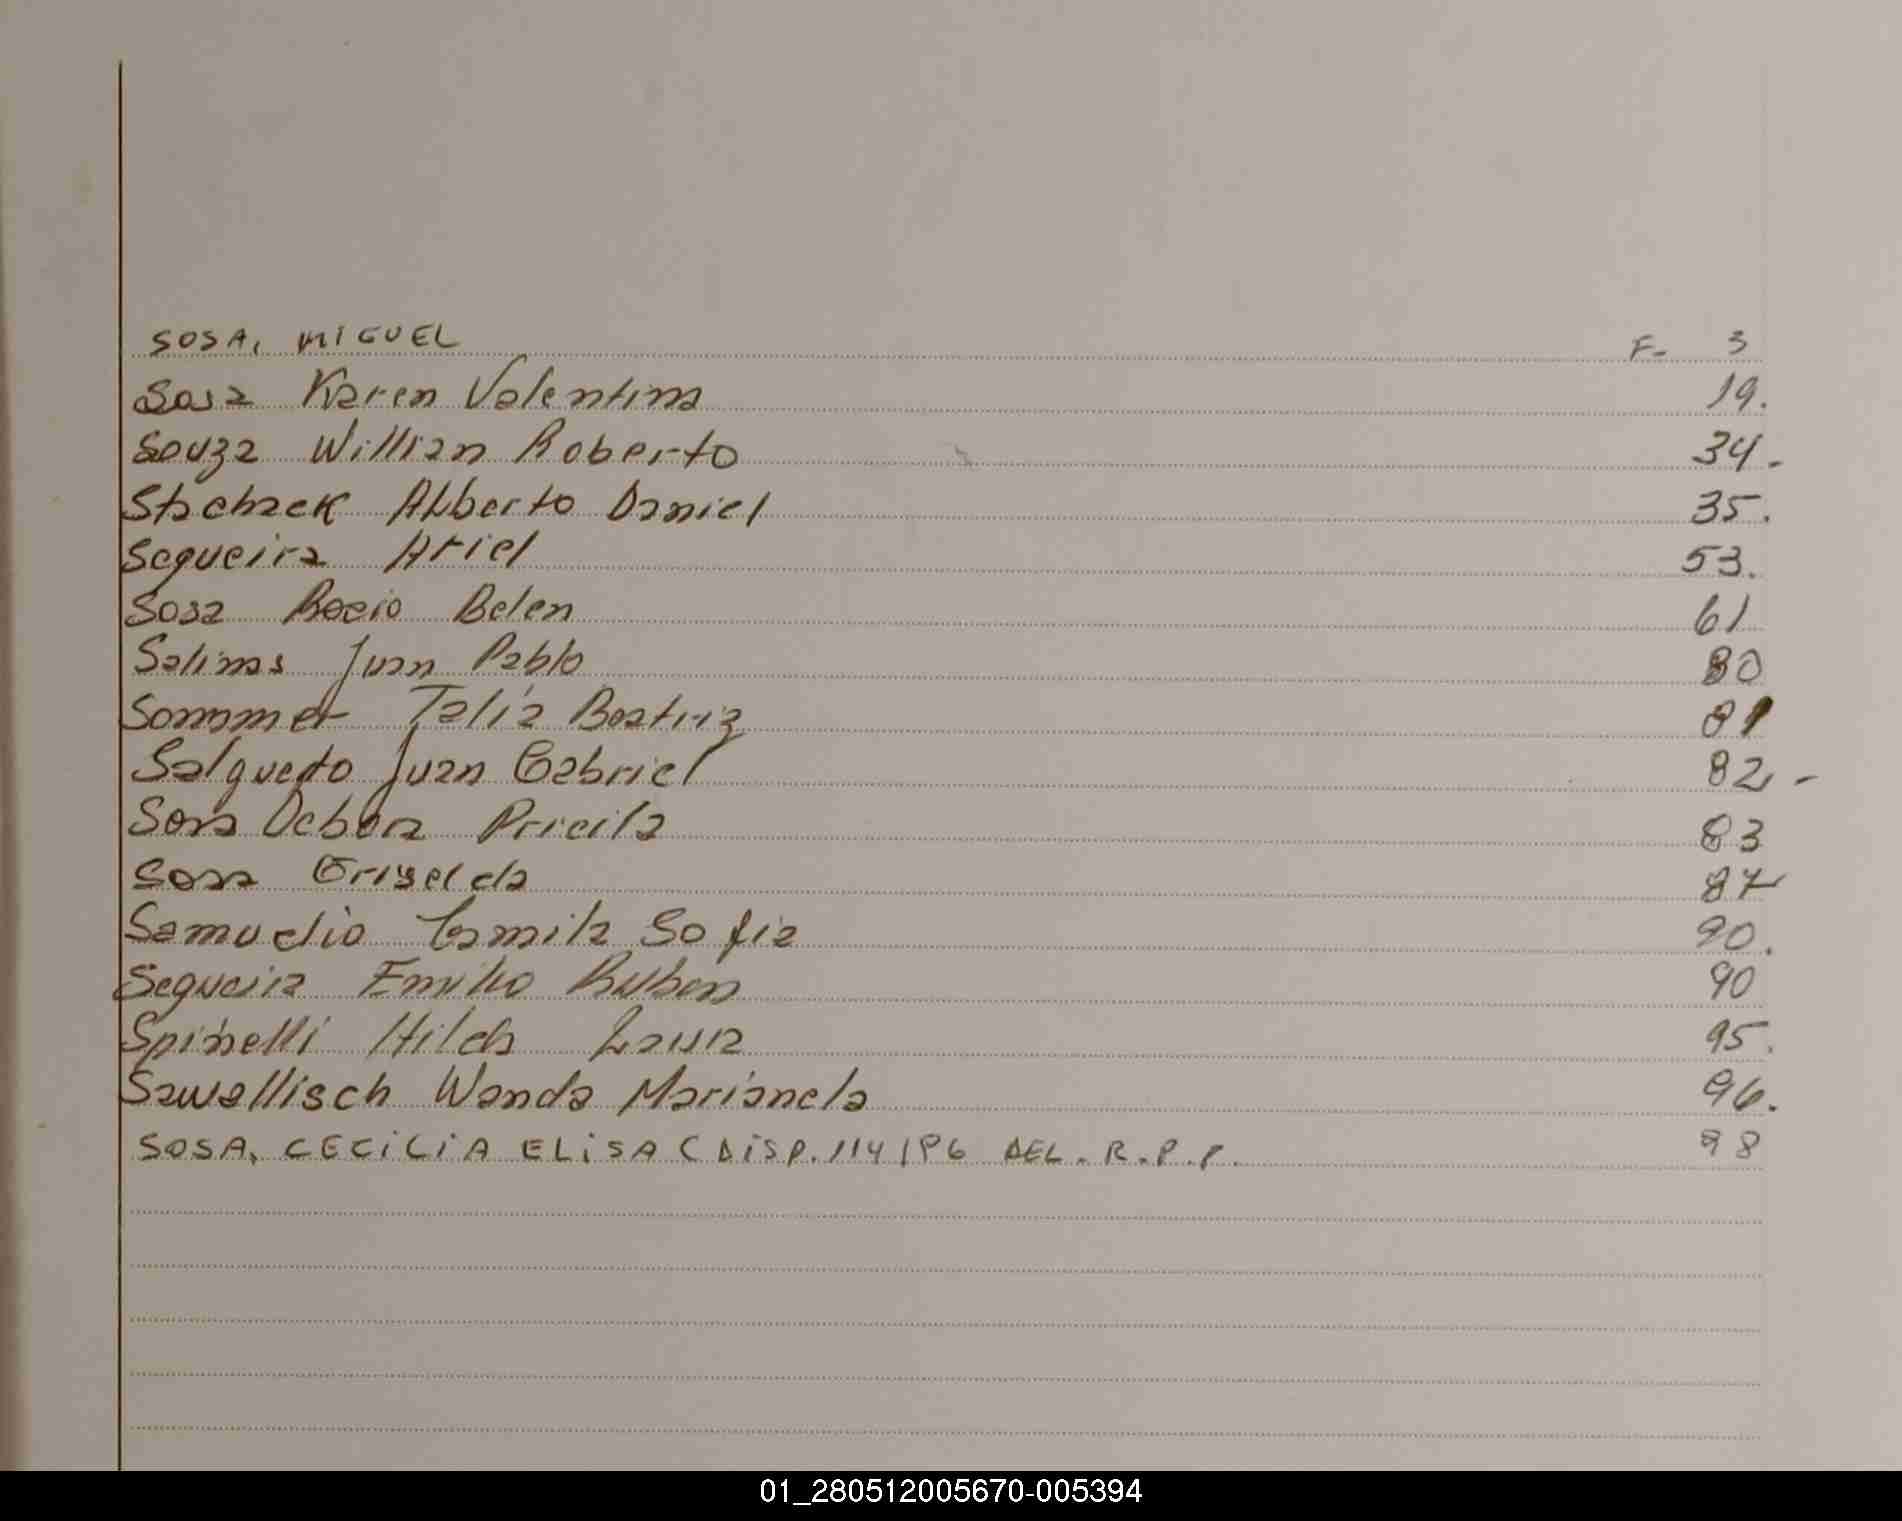 SOSA, MIGUEL F- 3
Sosa Karen Valentina 19.
Souza Willian Roberto 34.
Stachack Alberto Daniel 35.
Sequeira Ariel 53.
Sosa Rocio Belen 61
Salinas Juan Pablo 80
Sommer Talia Beatriz 81
Salguero Juan Gabriel 82 -
Sosa Debora Pricila 83
Sosa Griselda 87
Samudio Camila Sofia 90.
Sequeira Emilio Ruben 90
Spinelli Hilda Laura 95.
Sawallisch Wanda Marianela 96.
SOSA, CECILIA ELISA (DISP. 114/96 DEL. R.P.P. 98
01_280512005670-005394